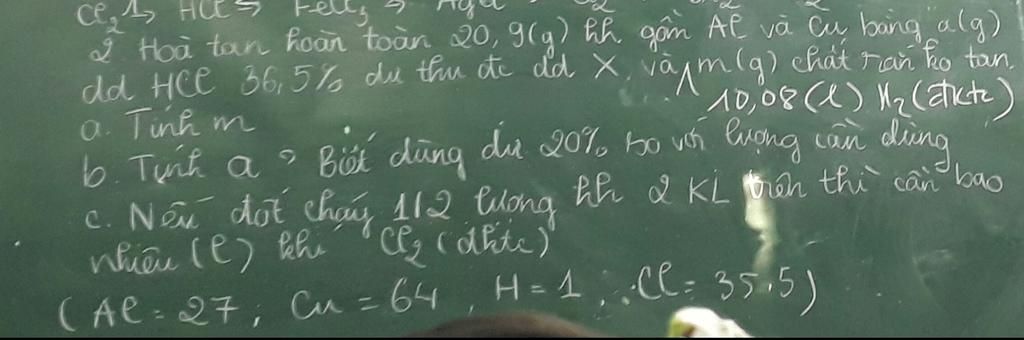 Cl2 1, HCl → FeCl3 →
2 Hoà tan hoàn toàn 20,9(g) hh gồm Al và Cu bằng a(g)
dd HCl 36,5% dư thu đc dd X, và m(g) chất rắn ko tan.
10,08(l) H2 (đktc)
a. Tính m
b. Tính a ? Biết dùng dư 20% so với lượng cần dùng
c. Nếu đốt cháy 1/2 lượng hh 2 KL trên thì cần bao
nhiêu (l) khí Cl2 (đktc)
(Al = 27; Cu = 64, H = 1, Cl = 35.5)